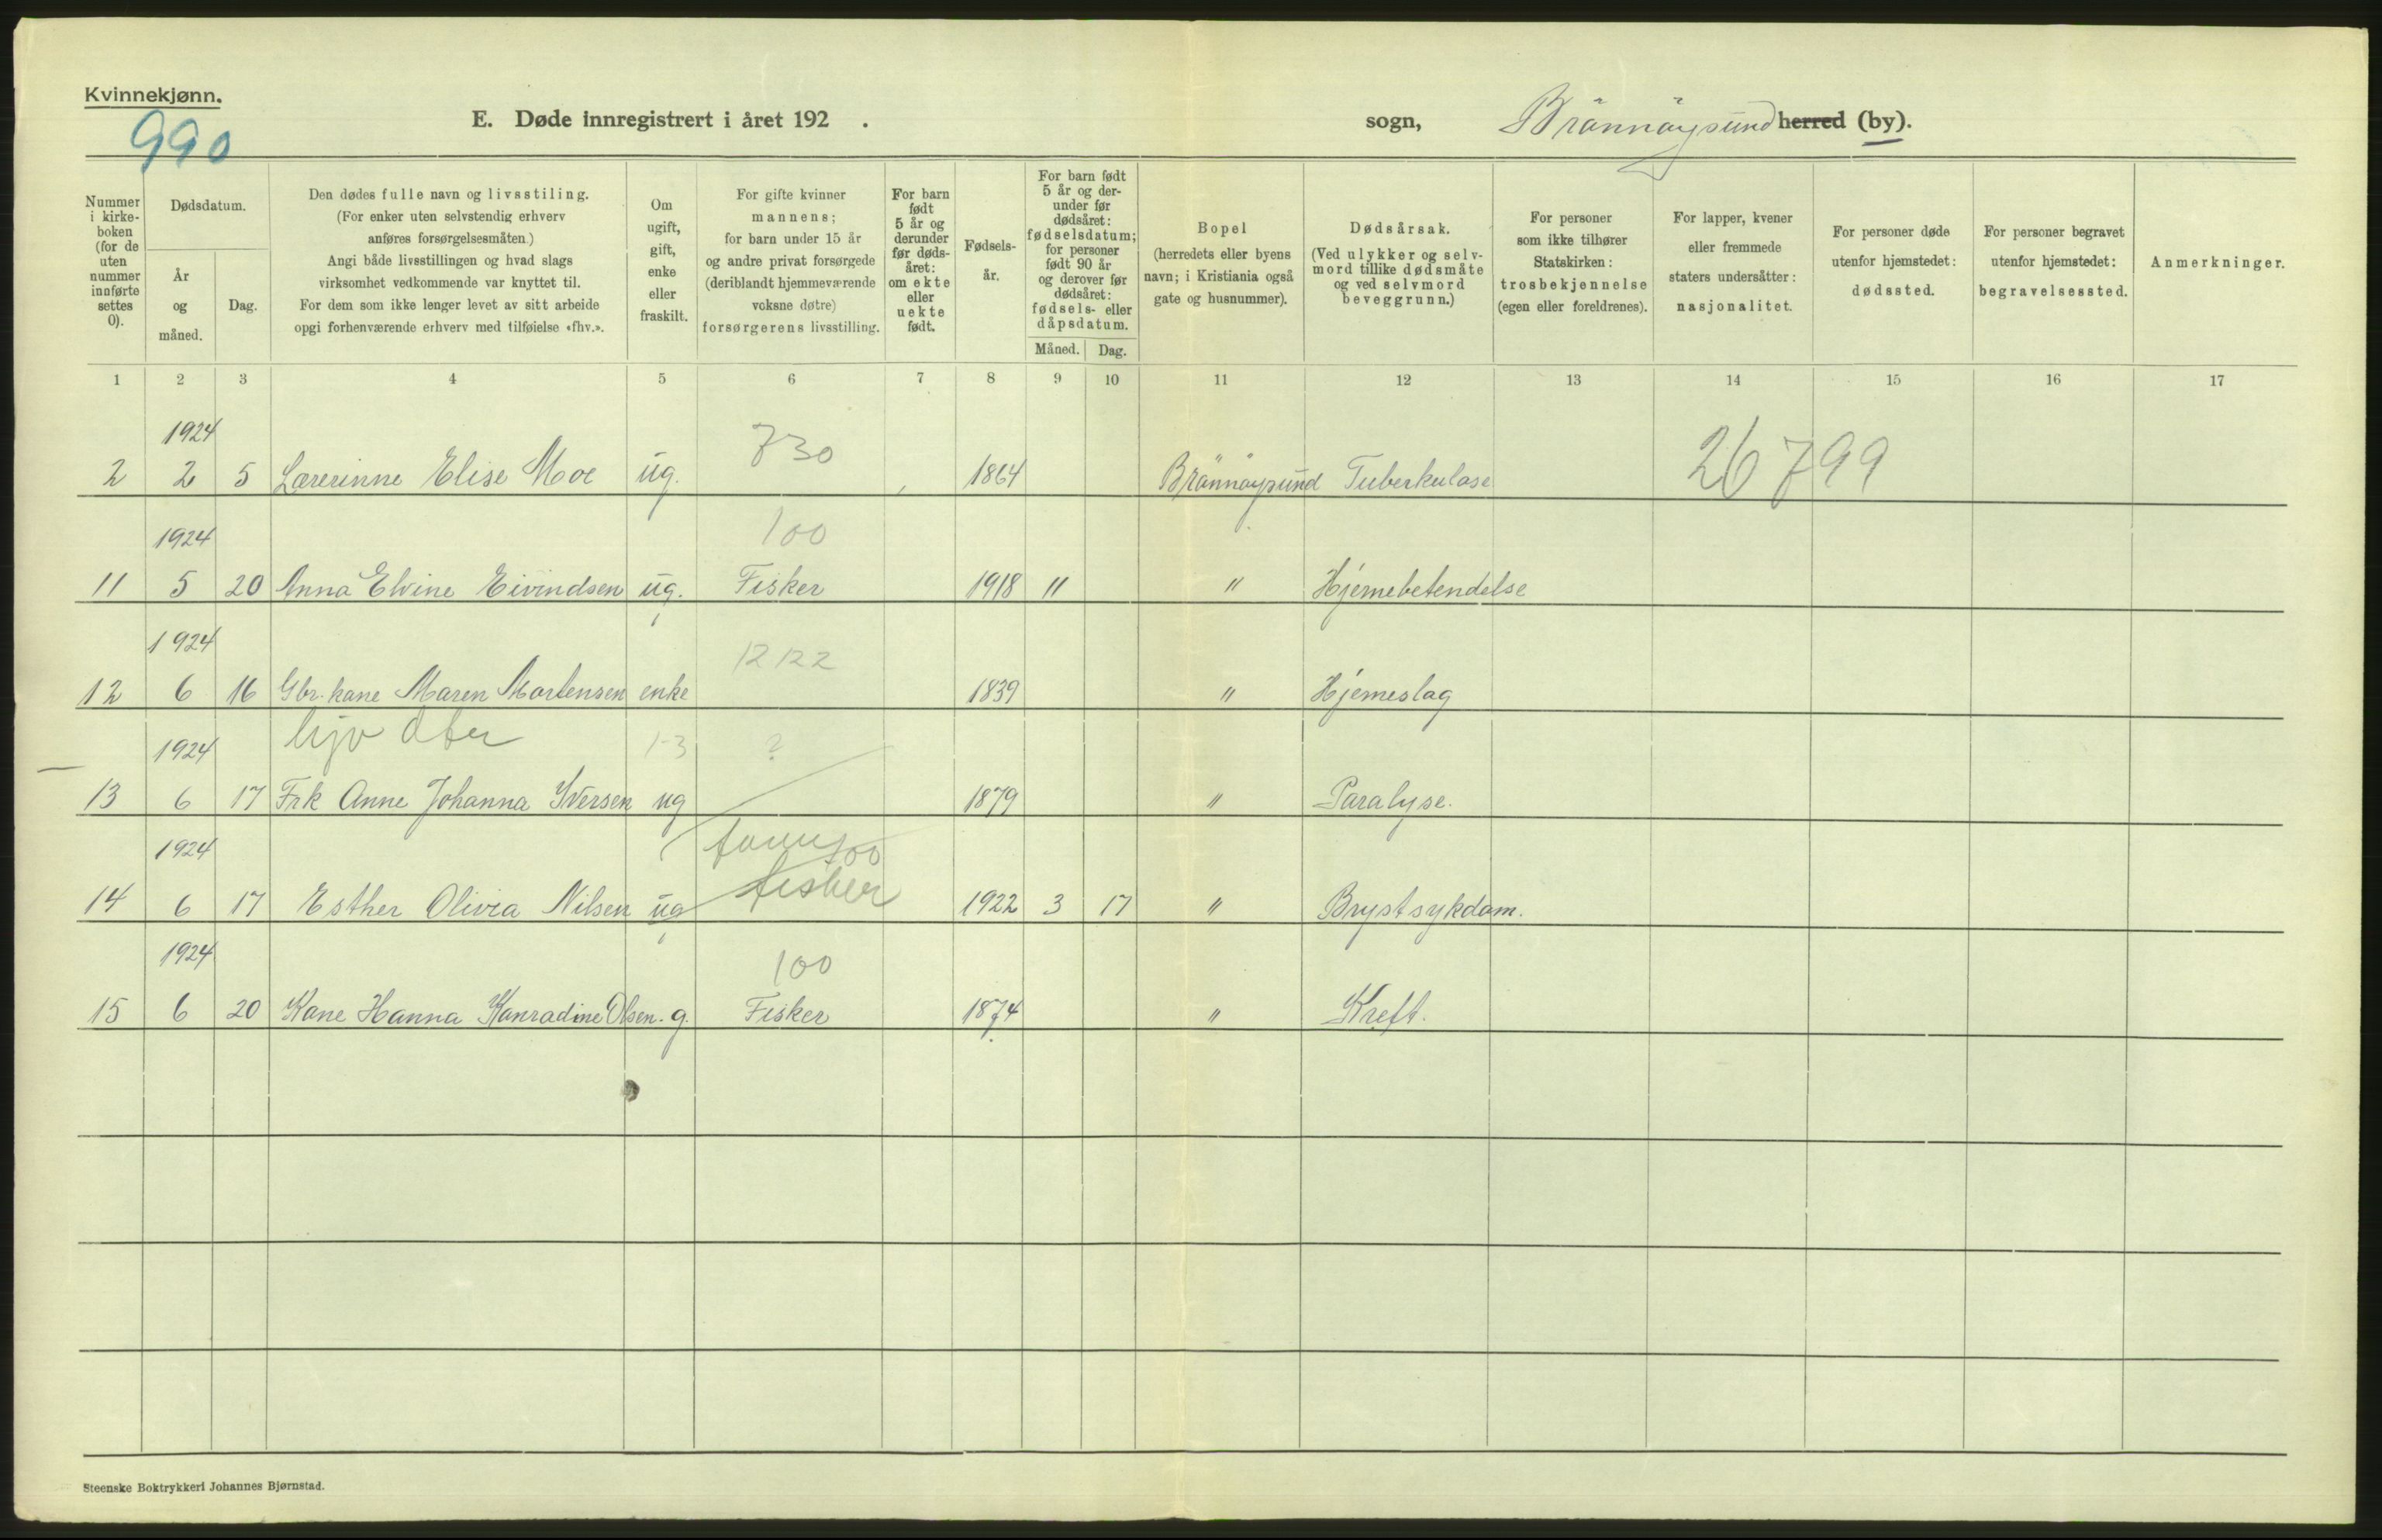 Kvinnekjønn.
990
E. Døde innregistrert i året 192 .
sogn, Brönnöysund herred (by).
Nummer i kirke- boken (for de uten nummer innførte settes 0).
Dødsdatum.
År og måned.
Dag.
Den dødes fulle navn og livsstiling.
(For enker uten selvstendig erhverv
anføres forsørgelsesmåten.)
Angi både livsstillingen og hvad slags
virksomhet vedkommende var knyttet til.
For dem som ikke lenger levet av sitt arbeide
opgi forhenværende erhverv med tilføielse «fhv.».
Om ugift, gift, enke eller fraskilt.
For gifte kvinner
mannens;
for barn under 15 år
og andre privat forsørgede
(deriblandt hjemmeværende
voksne døtre)
forsørgerens livsstilling.
For barn født 5 år og derunder før døds- året: om ekte eller uekte født.
Fødsels- år.
For barn født 5 år og der- under før dødsåret: fødselsdatum; for personer født 90 år og derover før dødsåret: fødsels- eller dåpsdatum.
Måned. Dag.
Bopel
(herredets eller byens
navn; i Kristiania også
gate og husnummer).
Dødsårsak.
(Ved ulykker og selv-
mord tillike dødsmåte
og ved selvmord
beveggrunn.)
For personer
som ikke tilhører
Statskirken:
trosbekjennelse
(egen eller foreldrenes).
For lapper, kvener
eller fremmede
staters undersåtter:
nasjonalitet.
For personer døde
utenfor hjemstedet:
dødssted.
For personer begravet
utenfor hjemstedet:
begravelsessted.
Anmerkninger.
1 2 3 4 5 6 7 8 9 10 11 12 13 14 15 16 17
1924 730 26799
2 2 5 Lærerinne Elise Moe ug. 1864 Brönnöysund Tuberkulose
1924 100
11 5 20 Anna Elvine Eivindsen ug. Fisker 1918 11 " Hjernebetendelse
1924 1222
12 6 16 Gbr. kone Maren Mortensen enke 1839 " Hjerneslag
1924 1-3 ?
13 6 17 Frk Anne Johanna Iversen ug 1879 " Paralyse.
1924
14 6 17 Esther Olivia Nilsen ug fisker 1922 3 17 " Brystsykdom.
1924 100
15 6 20 Kone Hanna Konradine Olsen. g. Fisker 1874 " Kreft.
Steenske Boktrykkeri Johannes Bjørnstad.